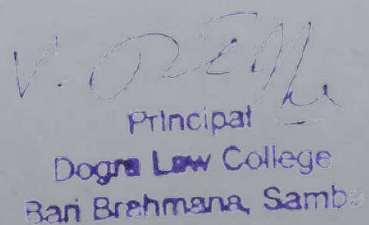 Principal
Dogra Law College
Bari Brahmana, Samba